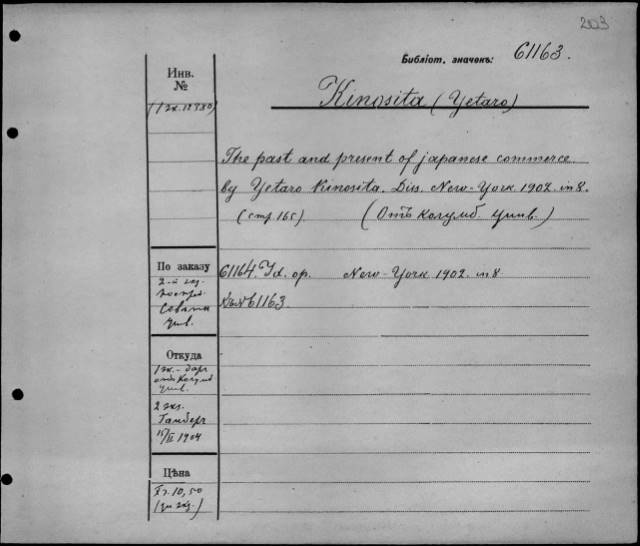 203
Библіот. значекъ: 61163.
Инв.
№
Kinosita (Yetaro)
The past and present of japanese commerce
by Yetaro Kinosita. Dis. New-York 1902. in 8.
(стр. 165). (Отъ Колумб. Унив.)
По заказу
2-й экз.
Совѣта
Унив.
61164. Id. op. New-York 1902. in 8
61163.
Откуда
1 экз. - даръ
отъ Колумб
Унив.
2 экз.
Гамберъ
15/II 1904
Цѣна
Fr. 10,50
(2й экз.)